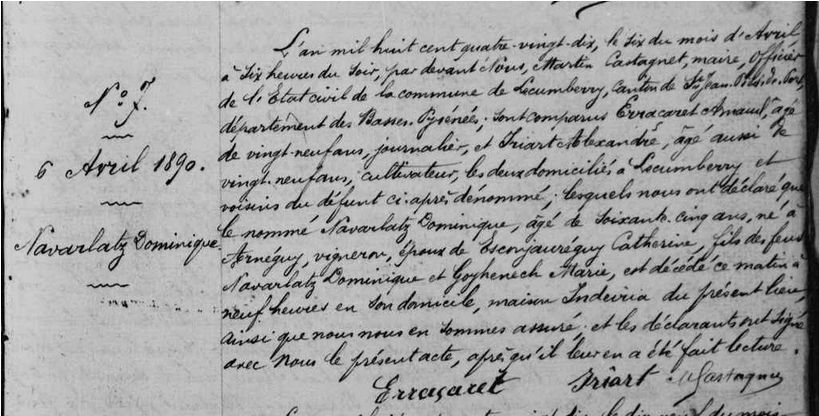 N° 7.
6 Avril 1890.
Navarlatz Dominique
L'an mil huit cent quatre-vingt-dix, le six du mois d'Avril
à six heures du soir, par devant Nous, Martin Castagnet, maire, officier
de l'Etat civil de la commune de Lecumberry, canton de St Jean-Pied-de-Port,
département des Basses-Pyrénées; sont comparus Erraçaret Arnaud, âgé
de vingt-neuf ans, journalier, et Iriart Alexandre, âgé aussi de
vingt-neuf ans, cultivateur, les deux domiciliés à Lecumberry et
voisins du défunt ci-après dénommé; lesquels nous ont déclaré que
le nommé Navarlatz Dominique, âgé de soixante-cinq ans, né à
Arnéguy, vigneron, époux de Esconjaureguy Catherine, fils des feus
Navarlatz Dominique et Goyhenech Marie, est décédé ce matin à
neuf heures en son domicile, maison Indeiria du présent lieu,
ainsi que nous nous en sommes assuré. et les déclarants ont signé
avec Nous le présent acte, après qu'il leur en a été fait lecture.
Erraçaret Iriart M Castagnet